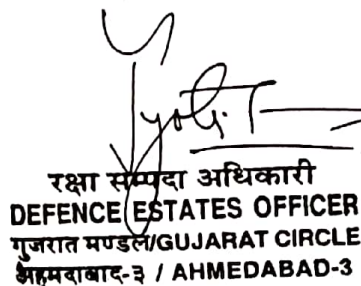 Jyoti.T
रक्षा सम्पदा अधिकारी
DEFENCE ESTATES OFFICER
गुजरात मण्डल/GUJARAT CIRCLE
अहमदाबाद-३ / AHMEDABAD-3